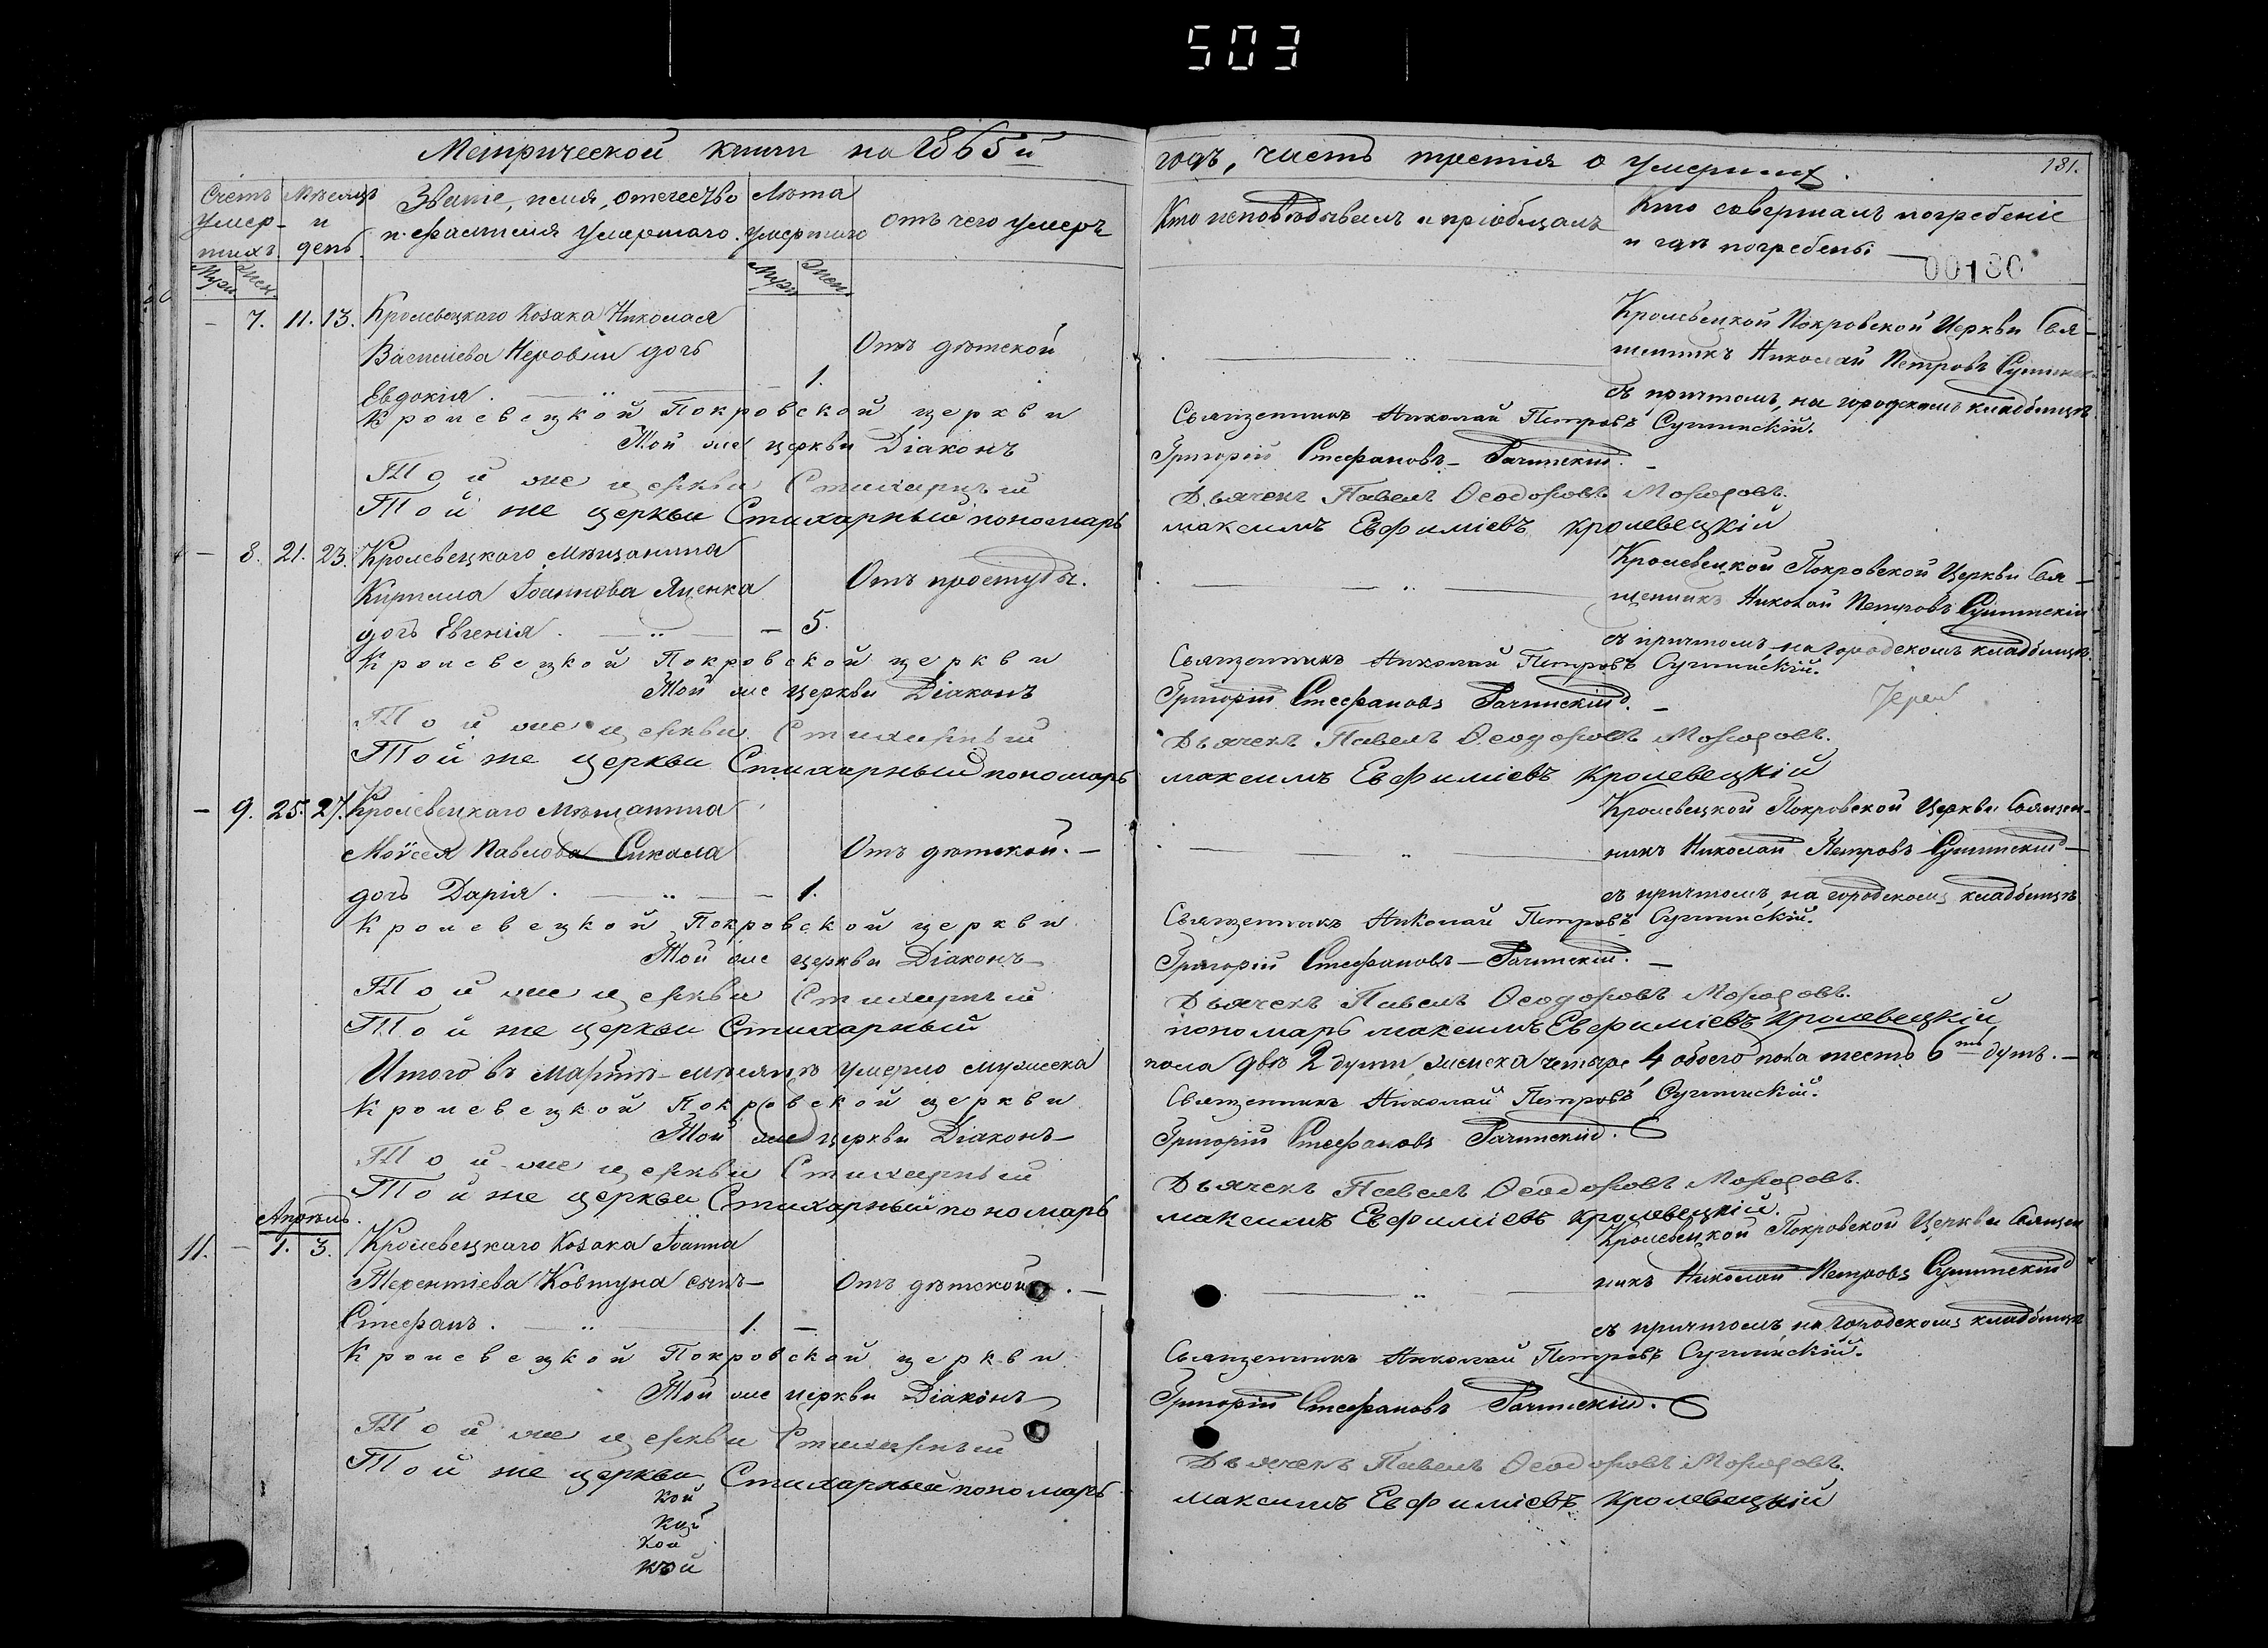 503
Метрической книги на 1865й годъ, часть третія о умершихъ.
181.
Счетъ умер-шихъ
Мѣсяцъ и день
Званіе, имя, отечество и фамилія умершаго.
Лѣта умершаго
отъ чего умеръ
Кто исповѣдывалъ и пріобщалъ
Кто совершалъ погребеніе и гдѣ погребены
00180
Муж. Жен.
Муж. Жен.
— 7. 11. 13. Кролевецкаго Козака Николая
Кролевецкой Покровской Церкви Свя-
Василіева Неровни дочь
Отъ дѣтской
щенникъ Николай Петровъ
Евдокія. — 1.
съ причтомъ, на городскомъ кладбищѣ
Кролевецкой Покровской церкви Священникъ Николай Петровъ
Той же церкви Діаконъ Григорій Стефановъ
Той же церкви Стихарный Дьячекъ Павелъ Ѳеодоровъ
Той же церкви Стихарный пономарь максимъ Евфиміевъ кролевецкій
— 8. 21. 23. Кролевецкаго мѣщанина
Кролевецкой Покровской Церкви Свя-
Кирилла Іоаннова Яценка
Отъ простуды.
щенникъ Николай Петровъ
дочь Евгенія. — 5.
съ причтомъ, на городскомъ кладбищѣ.
Кролевецкой Покровской церкви Священникъ Николай Петровъ
Той же церкви Діаконъ Григорій Стефановъ
Іерей
Той же церкви Стихарный Дьячекъ Павелъ Ѳеодоровъ
Той же церкви Стихарный пономарь максимъ Евфиміевъ Кролевецкій
— 9. 25. 27. Кролевецкаго мѣщанина
Кролевецкой Покровской Церкви Священ-
Моѵсея Павлова Сикала
Отъ дѣтской. —
никъ Николай Петровъ
дочь Дарія. — 1.
съ причтомъ, на городскомъ кладбищѣ
Кролевецкой Покровской церкви Священникъ Николай Петровъ
Той же церкви Діаконъ Григорій Стефановъ
Той же церкви Стихарный Дьячекъ Павелъ Ѳеодоровъ
Той же церкви Стихарный пономарь максимъ Евфиміевъ Кролевецкій
Итого въ Мартѣ мѣсяцѣ умерло мужеска пола двѣ 2 души, женска четыре 4 обоего пола шесть 6ть душъ. —
Кролевецкой Покровской церкви Священникъ Николай Петровъ
Той же церкви Діаконъ Григорій Стефановъ
Той же церкви Стихарный Дьячекъ Павелъ Ѳеодоровъ
Той же церкви Стихарный пономарь максимъ Евфиміевъ Кролевецкій.
Апрѣль.
11. — 1. 3. Кролевецкаго Козака Іоанна
Кролевецкой Покровской Церкви Священ
Терентіева Ковтуна сынъ
Отъ дѣтской. —
никъ Николай Петровъ
Стефанъ. 1. —
съ причтомъ, на городскомъ кладбищѣ
Кролевецкой Покровской церкви Священникъ Николай Петровъ
Той же церкви Діаконъ Григорій Стефановъ
Той же церкви Стихарный Дьячекъ Павелъ Ѳеодоровъ
Той же церкви Стихарный пономарь максимъ Евфиміевъ Кролевецкій
кой
кой
кой